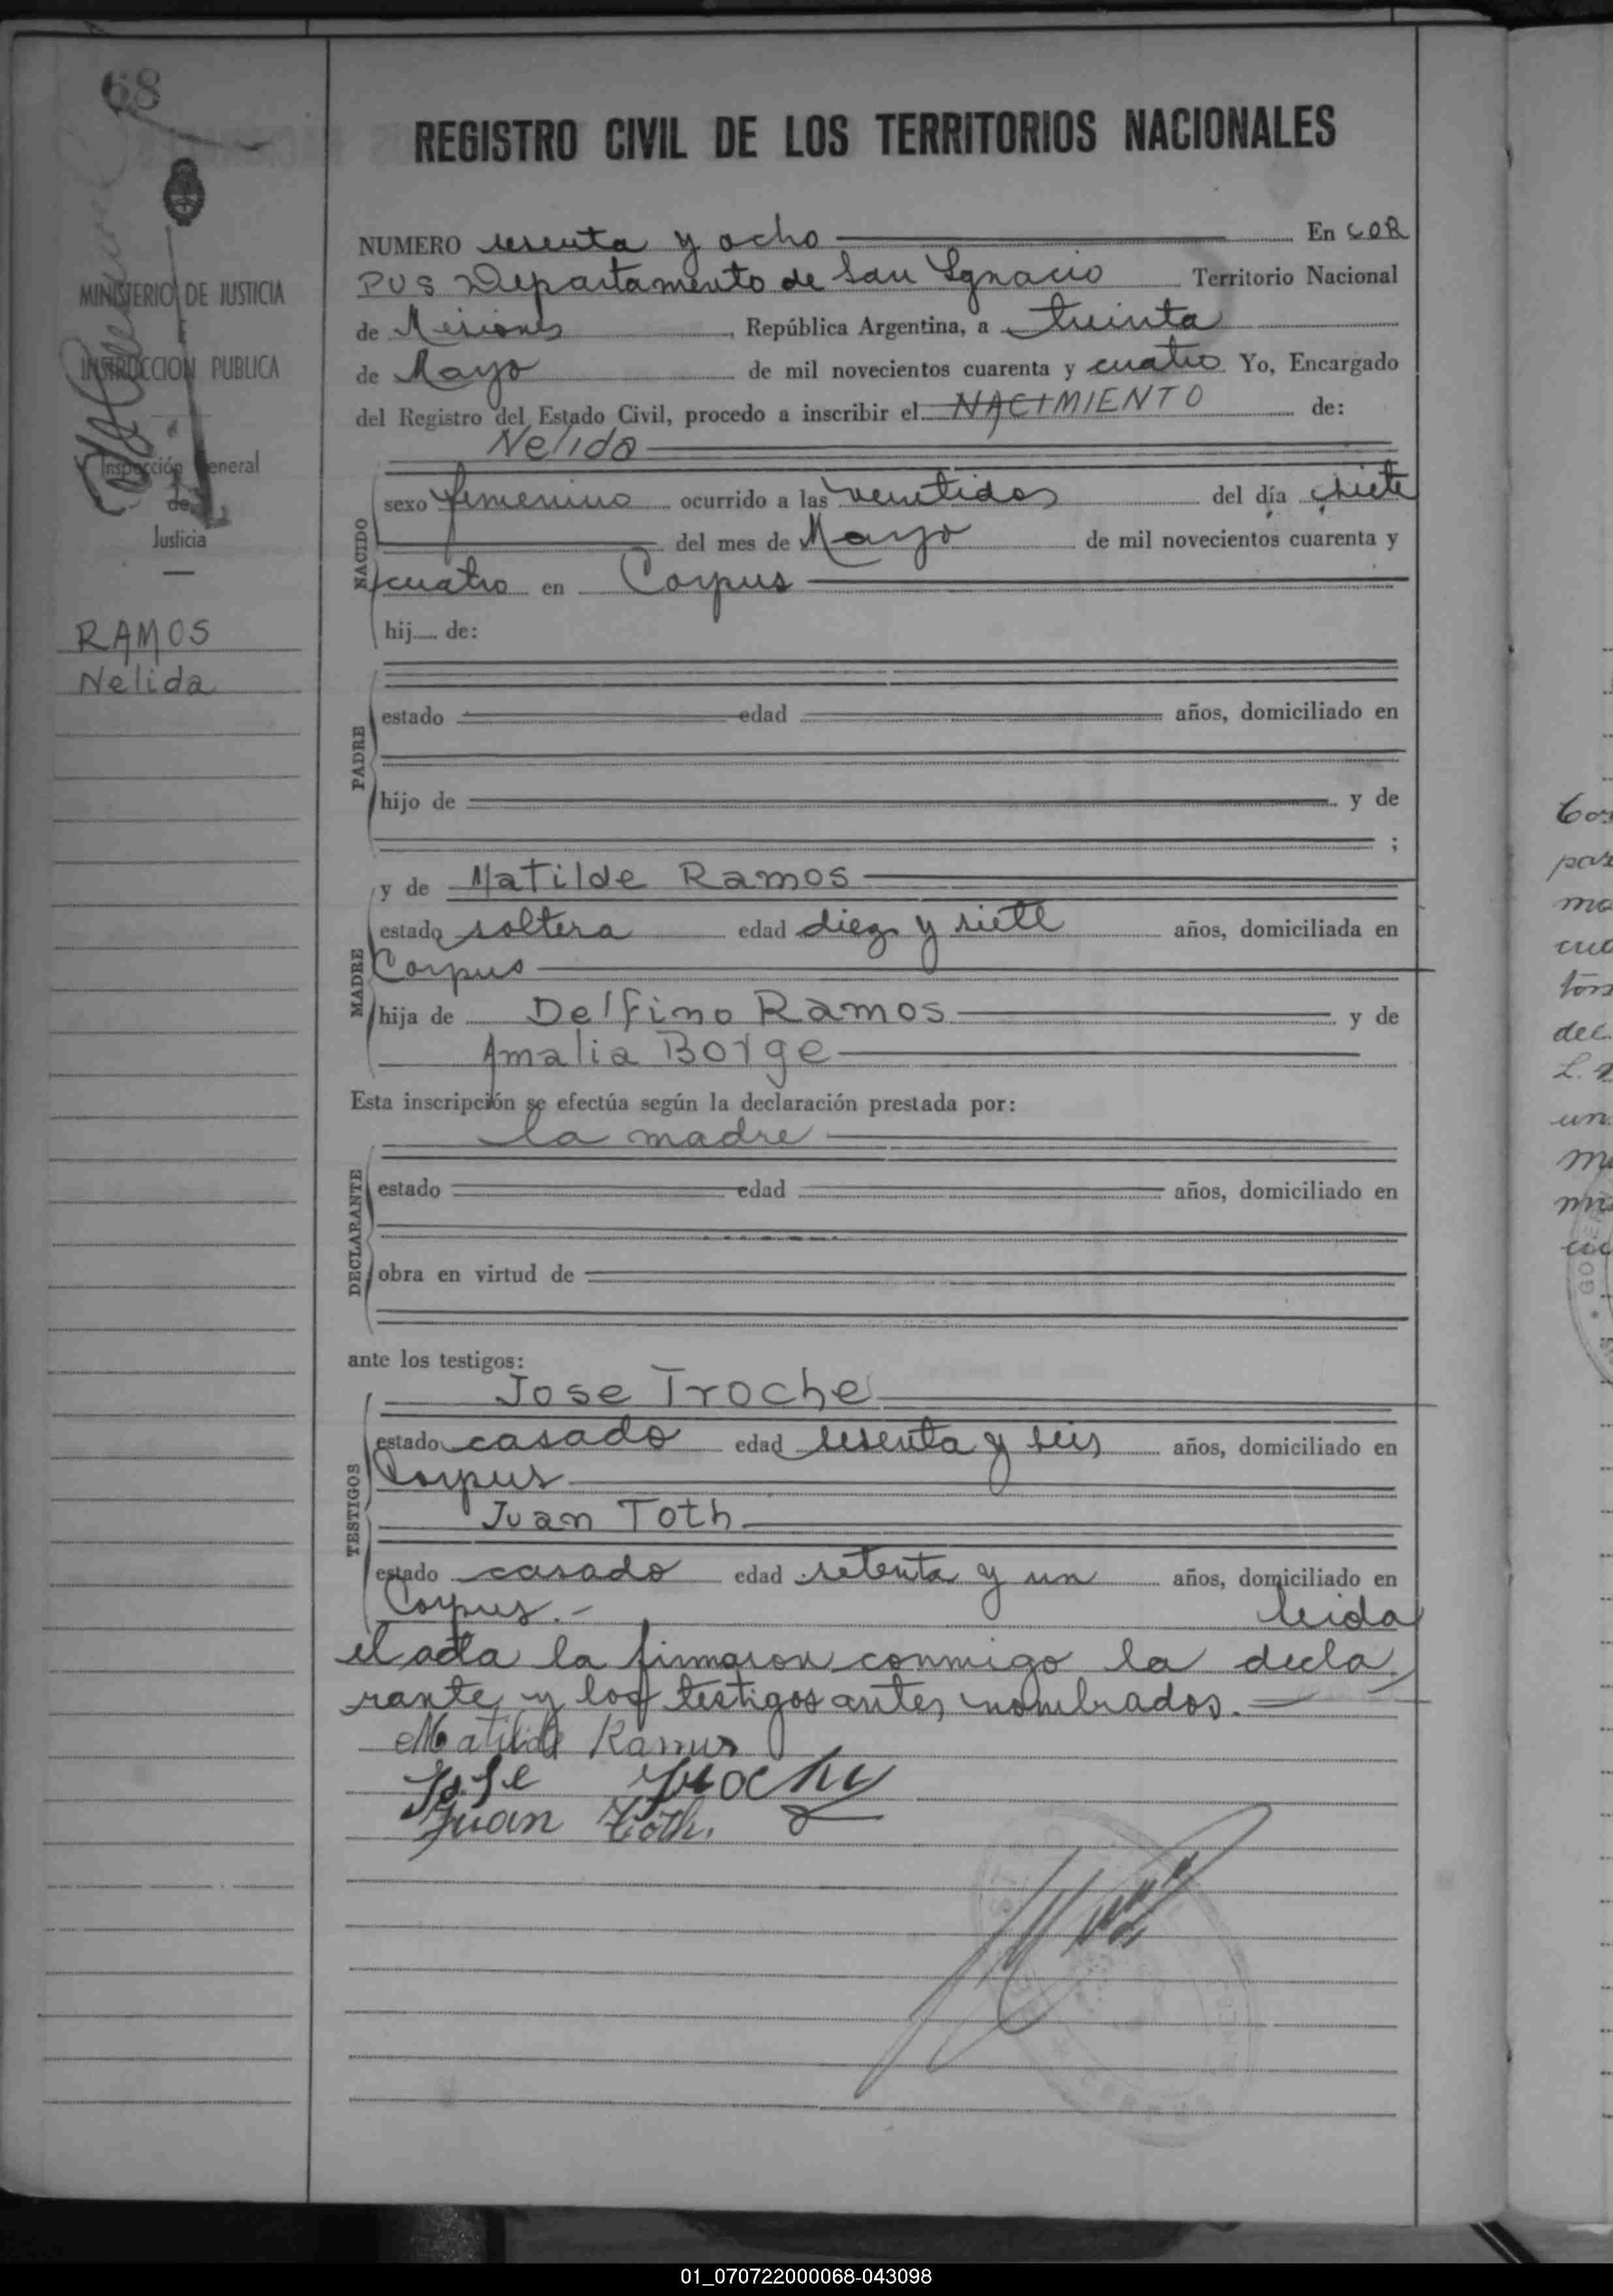 68
MINISTERIO DE JUSTICIA
INSTRUCCION PUBLICA
Inspección General
de
Justicia
RAMOS
Nelida
REGISTRO CIVIL DE LOS TERRITORIOS NACIONALES
NUMERO sesenta y ocho En COR
PUS Departamento de San Ignacio Territorio Nacional
de Misiones, República Argentina, a treinta
de Mayo de mil novecientos cuarenta y cuatro Yo, Encargado
del Registro del Estado Civil, procedo a inscribir el NACIMIENTO de:
Nelida
NACIDO
sexo femenino ocurrido a las veintidos del día
del mes de Mayo de mil novecientos cuarenta y
cuatro en Corpus
hij de:
PADRE
estado edad años, domiciliado en
hijo de y de
;
MADRE
y de Matilde Ramos
estado soltera edad diez y siete años, domiciliada en
Corpus
hija de Delfino Ramos y de
Amalia Borge
Esta inscripción se efectúa según la declaración prestada por:
la madre
DECLARANTE
estado edad años, domiciliado en
obra en virtud de
ante los testigos:
TESTIGOS
Jose Troche
estado casado edad sesenta y seis años, domiciliado en
Corpus
Juan Toth
estado casado edad setenta y un años, domiciliado en
Corpus.- leida
el acta la firmaron conmigo la decla
rante y los testigos antes nombrados.
Matilde Ramos
Jose Troche
Juan Toth.
01_070722000068-043098